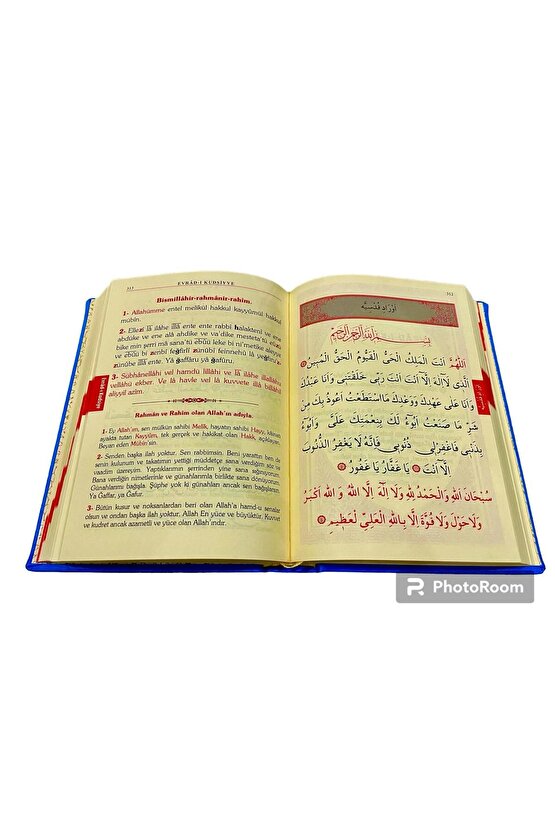 313
EVRÂD-I KUDSİYYE
Bismillâhir-rahmânir-rahim.
1- Allahümme entel melikül hakkul kayyûmül hakkul
mübîn.
2- Ellezî lâ ilâhe illâ ente ente rabbî halaktenî ve ene
abdüke ve ene alâ ahdike ve va'dike mesteta'tü eûzü
bike min şerri mâ sana'tü ebûü leke bi ni'metike aleyye
ve ebûü bi zenbî feğfirlî zünûbî feinnehû lâ yeğfiruz
zünûbe illâ ente. Yâ ğaffâru yâ ğafûru.
3- Sübhânellâhi vel hamdü lillâhi ve lâ ilâhe illallâhü
vellâhü ekber. Ve lâ havle vel lâ kuvvete illâ billâhil
aliyyil azîm.
Rahmân ve Rahîm olan Allah'ın adıyla.
1- Ey Allah'ım, sen mülkün sahibi Melik, hayatın sahibi Hayy, kâinatı
ayakta tutan Kayyûm, tek gerçek ve hakikat olan Hakk, açıklayan,
Beyan eden Mübîn'sin.
2- Senden başka ilah yoktur. Sen rabbimsin. Beni yarattın ben de
senin kulunum ve takatımın yettiği müddetçe sana verdiğim söz ve
vaadim üzereyim. Yaptıklarımın şerrinden yine sana sığınıyorum.
Bana verdiğin nimetlerinle ve günahlarımla birlikte sana dönüyorum.
Günahlarımı bağışla. Şüphe yok ki günahları ancak sen bağışlarsın.
Ya Ğaffar, ya Ğafur.
3- Bütün kusur ve noksanlardan beri olan Allah'a hamd-u senalar
olsun ve ondan başka ilah yoktur. Allah En yüce ve büyüktür. Kuvvet
ve kudret ancak azametli ve yüce olan Allah'ındır.
Evrad-ı Kudsiyye
312
اَوْرَادِ قُدْسِيَّه
بِسْمِ اللهِ الرَّحْمٰنِ الرَّحِيمِ
اَللّٰهُمَّ اَنْتَ الْمَلِكُ الْحَىُّ الْقَيُّومُ الْحَقُّ الْمُبِينُ
اَلَّذِى لَآ اِلٰهَ اِلَّا اَنْتَ اَنْتَ رَبِّى خَلَقْتَنِى وَاَنَا عَبْدُكَ
وَاَنَا عَلٰى عَهْدِكَ وَوَعْدِكَ مَا اسْتَطَعْتُ اَعُوذُ بِكَ مِنْ
شَرِّ مَا صَنَعْتُ اَبُوءُ لَكَ بِنِعْمَتِكَ عَلَىَّ وَاَبُوءُ
بِذَنْبِى فَاغْفِرْلِى ذُنُوبِى فَاِنَّهُ لَا يَغْفِرُ الذُّنُوبَ
اِلَّا اَنْتَ يَا غَفَّارُ يَا غَفُورُ
سُبْحَانَ اللهِ وَالْحَمْدُ لِلّٰهِ وَلَا اِلٰهَ اِلَّا اللهُ وَ اللهُ اَكْبَرُ
وَلَا حَوْلَ وَلَا قُوَّةَ اِلَّا بِاللهِ الْعَلِىِّ لْعَظِيمِ
PhotoRoom